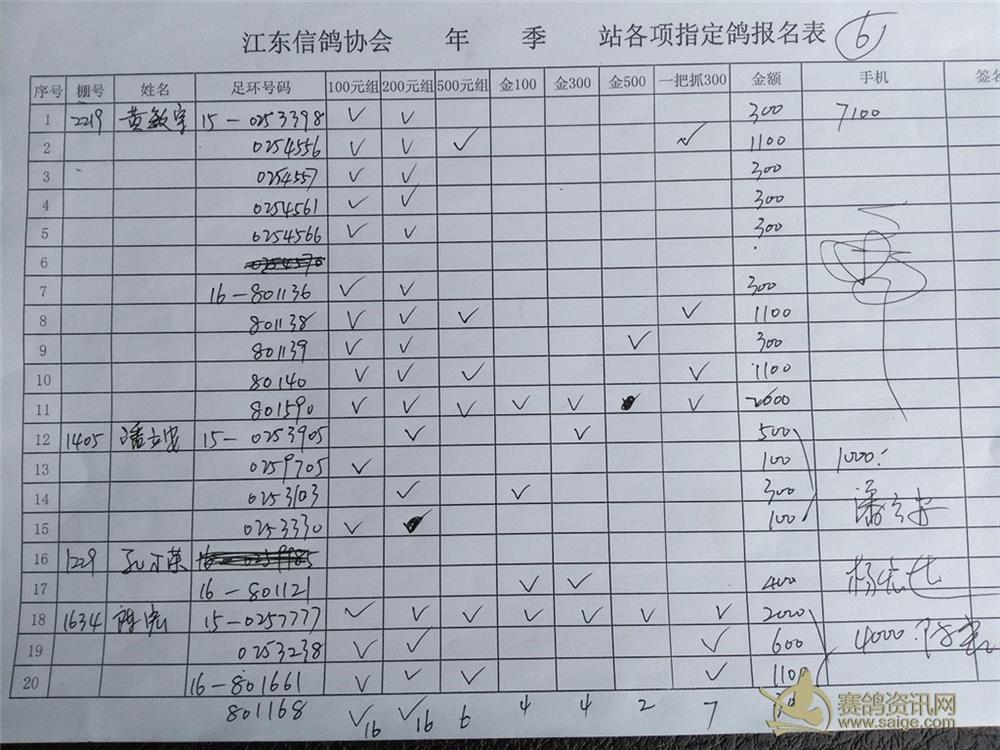 江东信鸽协会 年 季 站各项指定鸽报名表 6
序号 棚号 姓名 足环号码 100元组 200元组 500元组 金100 金300 金500 一把抓300 金额 手机 签名
1 2219 黄敏宇 15-0253398 ✓ ✓ 300 7100
2 0254556 ✓ ✓ ✓ ✓ 1100
3 0254557 ✓ ✓ 300
4 0254561 ✓ ✓ 300
5 0254566 ✓ ✓ 300
6 0254570
7 16-801136 ✓ ✓ 300
8 801138 ✓ ✓ ✓ ✓ 1100
9 801139 ✓ ✓ ✓ 300
10 80140 ✓ ✓ ✓ ✓ 1100
11 801590 ✓ ✓ ✓ ✓ ✓ ✓
12 1405 潘立安 15-0253905 ✓ ✓ 500
13 0259705 ✓ 100 1000
14 0253103 ✓ ✓ 300
15 0253330 ✓ 100 潘立安
16 1229
17 16-801121 ✓ ✓ 400
18 1634 15-0257777 ✓ ✓ ✓ ✓ ✓ ✓ ✓ 2000
19 0253238 ✓ ✓ ✓ 600 4000
20 16-801661 ✓ ✓ ✓ ✓ 1100
801168 ✓16 ✓16 6 4 4 2 7
赛鸽资讯网
www.saige.com